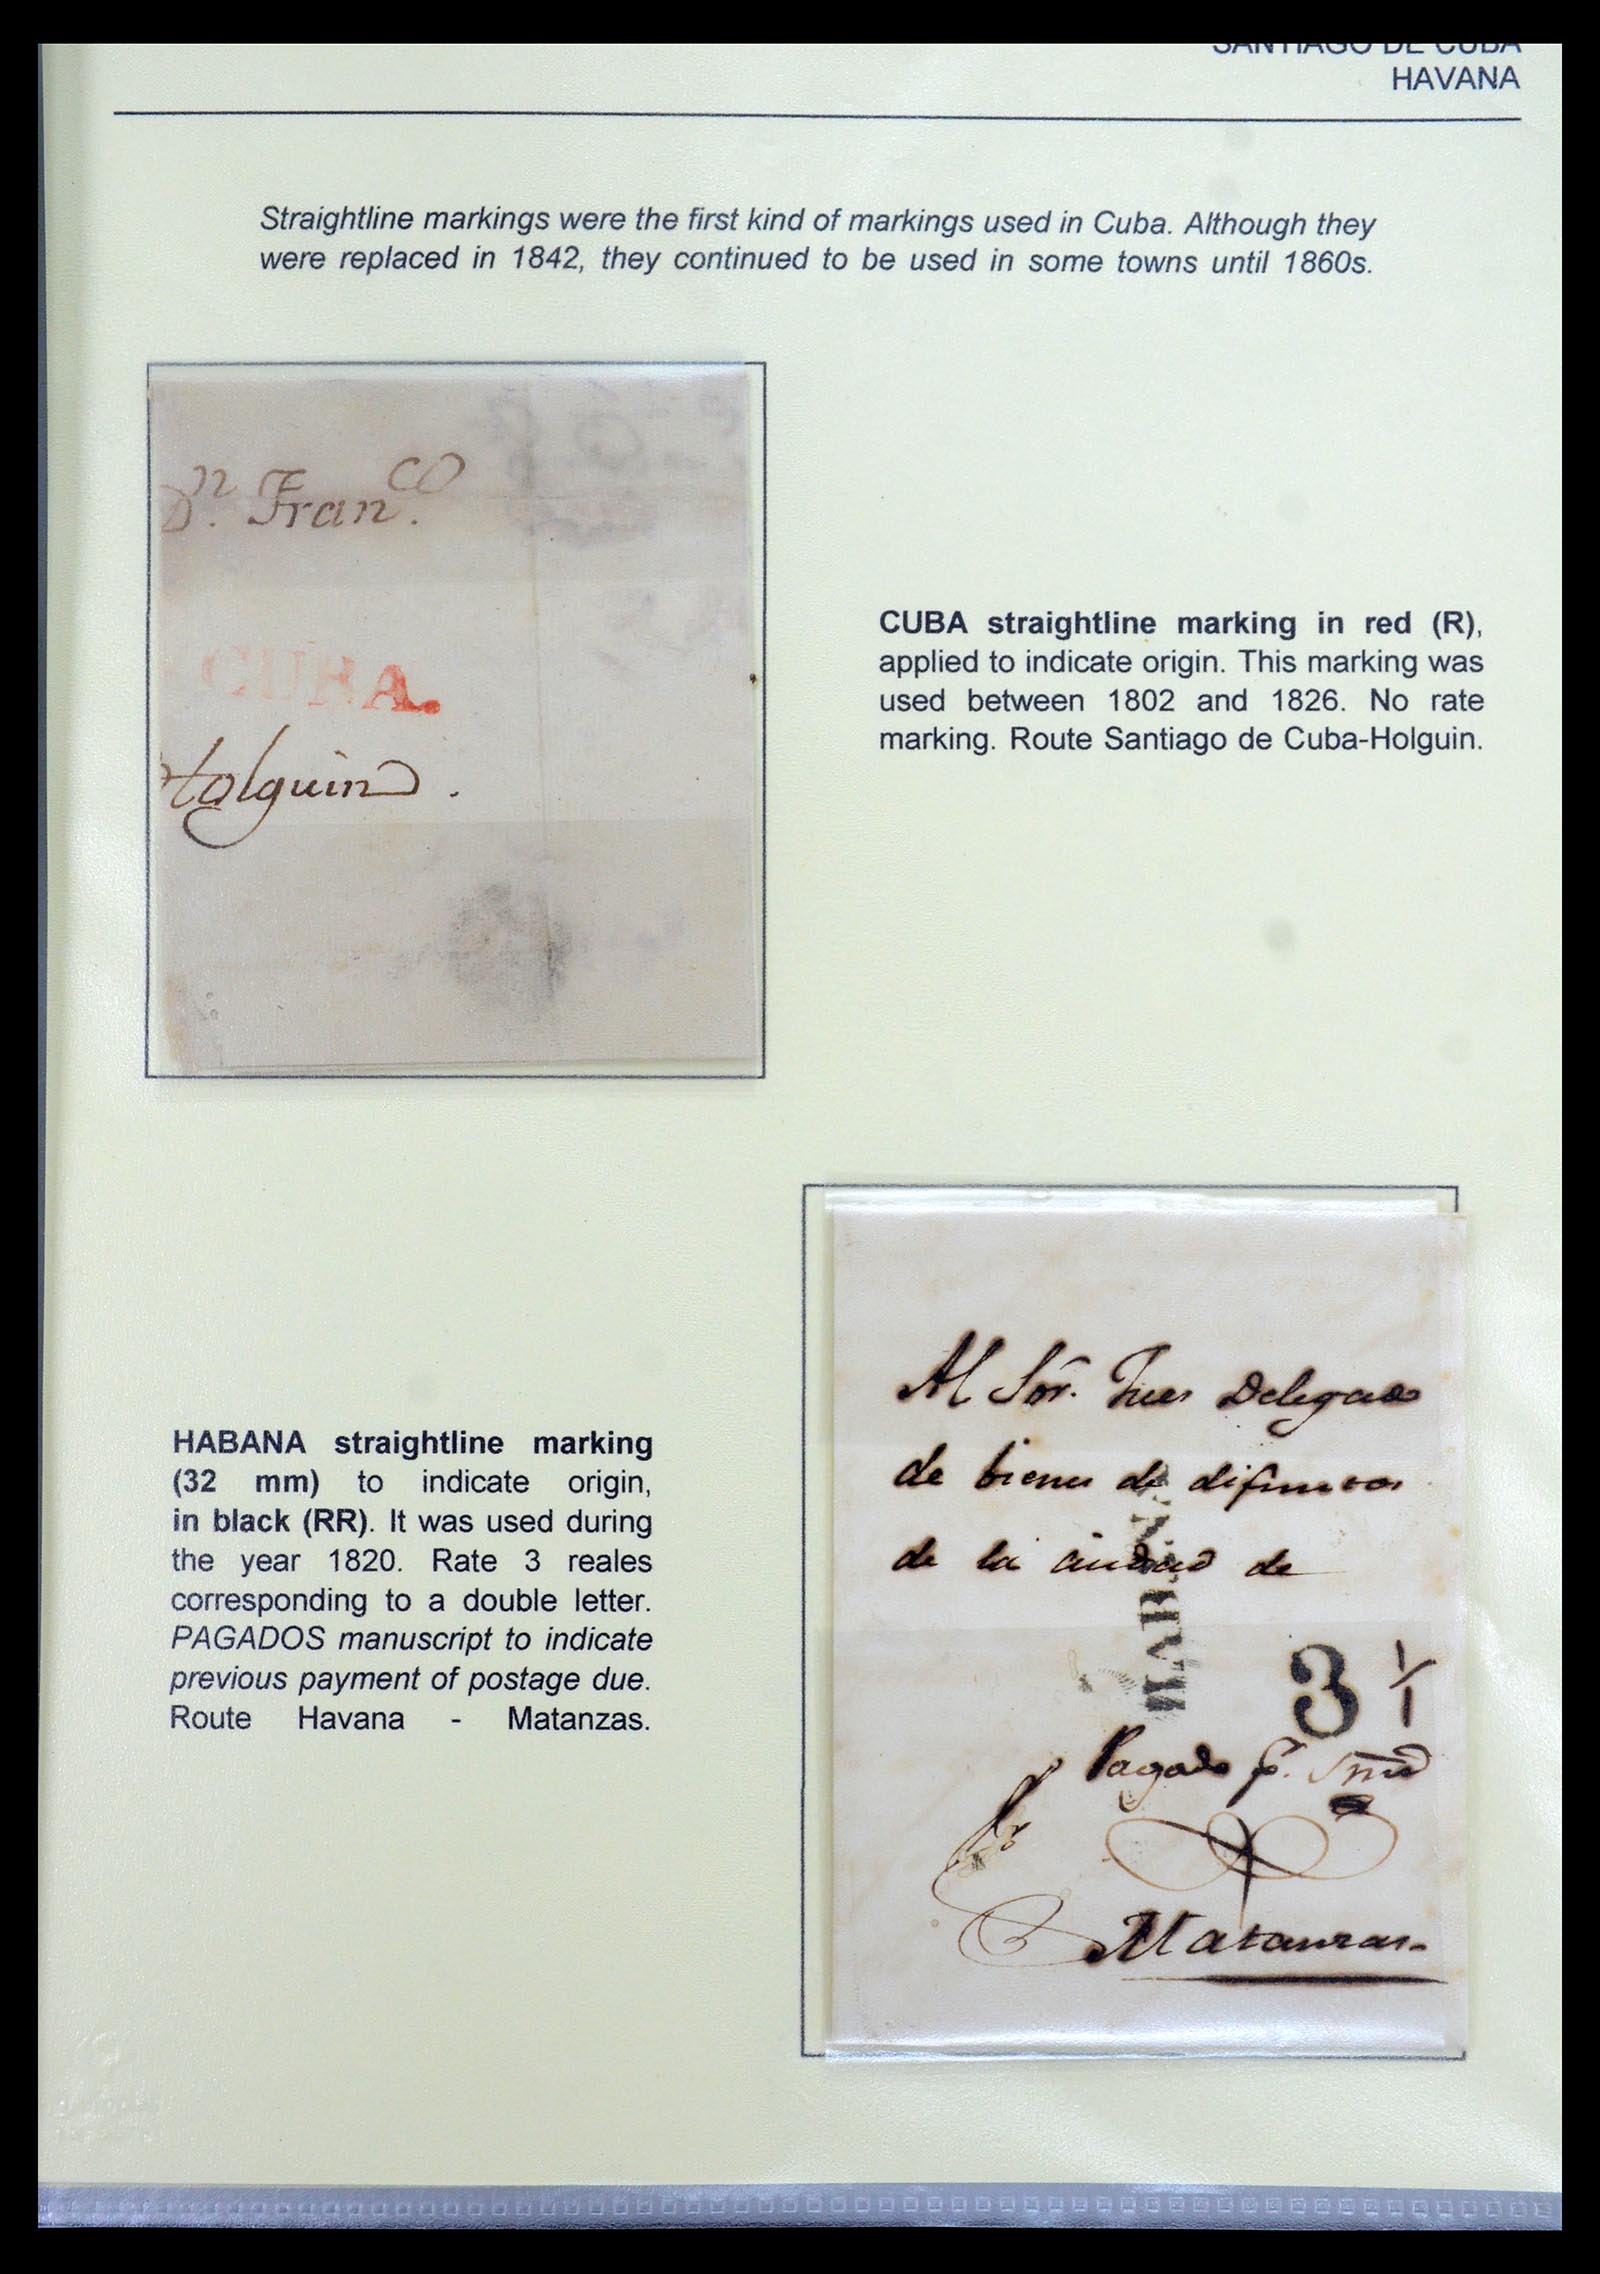 SANTIAGO DE CUBA
HAVANA
Straightline markings were the first kind of markings used in Cuba. Although they
were replaced in 1842, they continued to be used in some towns until 1860s.
Dn. Franco.
CUBA.
Holguin.
CUBA straightline marking in red (R),
applied to indicate origin. This marking was
used between 1802 and 1826. No rate
marking. Route Santiago de Cuba-Holguin.
HABANA straightline marking
(32 mm) to indicate origin,
in black (RR). It was used during
the year 1820. Rate 3 reales
corresponding to a double letter.
PAGADOS manuscript to indicate
previous payment of postage due.
Route Havana - Matanzas.
Al Sor. Juez Delegado
de bienes de difuntos
de la ciudad de
HABANA
3
Pagado
Matanzas.